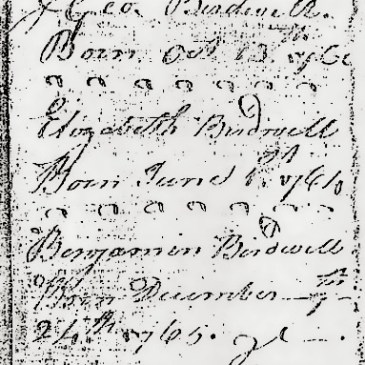 Geo Birdwell.
Born Oct 13th 176
Elizabeth Birdwell
Born June 1st 1764
Benjamin Birdwell
Born December
24th 1765.